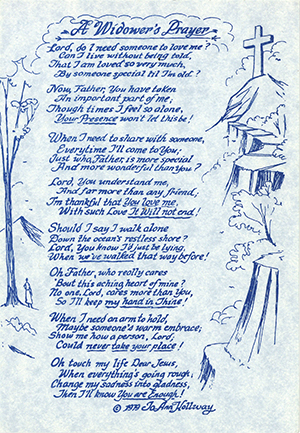 A Widower's Prayer
Lord, do I need someone to love me?
Can I live without being told,
That I am loved so very much,
By someone special til I'm old?
Now, Father, You have taken
An important part of me,
Though times I feel so alone,
Your Presence won't let this be!
When I need to share with someone,
Everytime I'll come to You;
Just who, Father, is more special
And more wonderful than you?
Lord, You understand me,
And far more than any friend;
I'm thankful that You love me,
With such Love It Will not end!
Should I say I walk alone
Down the ocean's restless shore?
Lord, You know I'd just be lying,
When we've walked that way before!
Oh Father, who really cares
'Bout this aching heart of mine?
No one, Lord, cares more than You,
So I'll keep my hand in Thine!
When I need an arm to hold,
Maybe someone's warm embrace;
Show me how a person, Lord,
Could never take your place!
Oh touch my life Dear Jesus,
When everything's going rough;
Change my sadness into gladness,
Then I'll know You are Enough!
© 1979 Jo Ann Kelloway